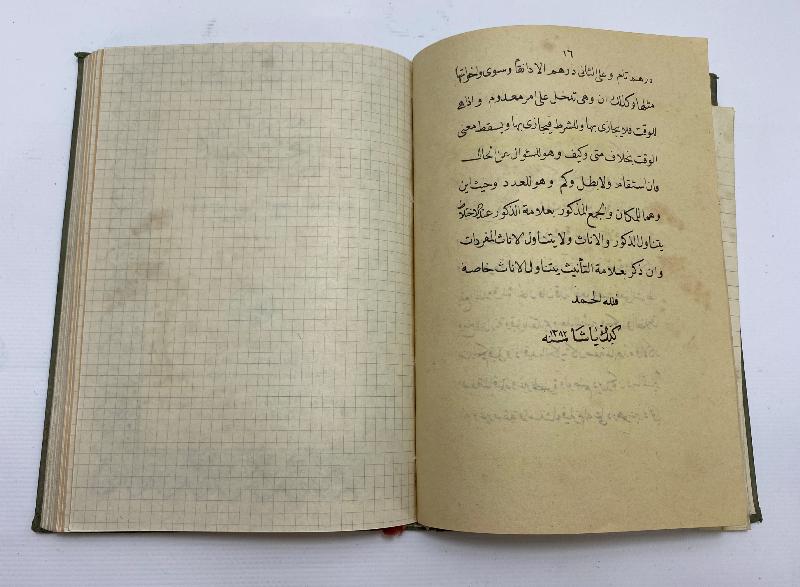 ١٦
درهم تام وعلى الثاني درهم الا دانقا وسوى واخواتها
مثلها وكذلك ان وهي تدخل على امر معدوم واذا
للوقت فلا يجازى بها وللشرط فيجازى بها ويسقط معنى
الوقت بخلاف متى وكيف وهو للسؤال عن الحال
وان استقام ولا بطل وكم وهو للعدد وحيث اين
وهما للمكان والجمع المذكور بعلامة الذكور عند الاختلاط
يتناول الذكور والاناث ولا يتناول الاناث المفردات
وان ذكر بعلامة التأنيث يتناول الاناث خاصة
فلله الحمد
پاشا سنه ١٣٨٢